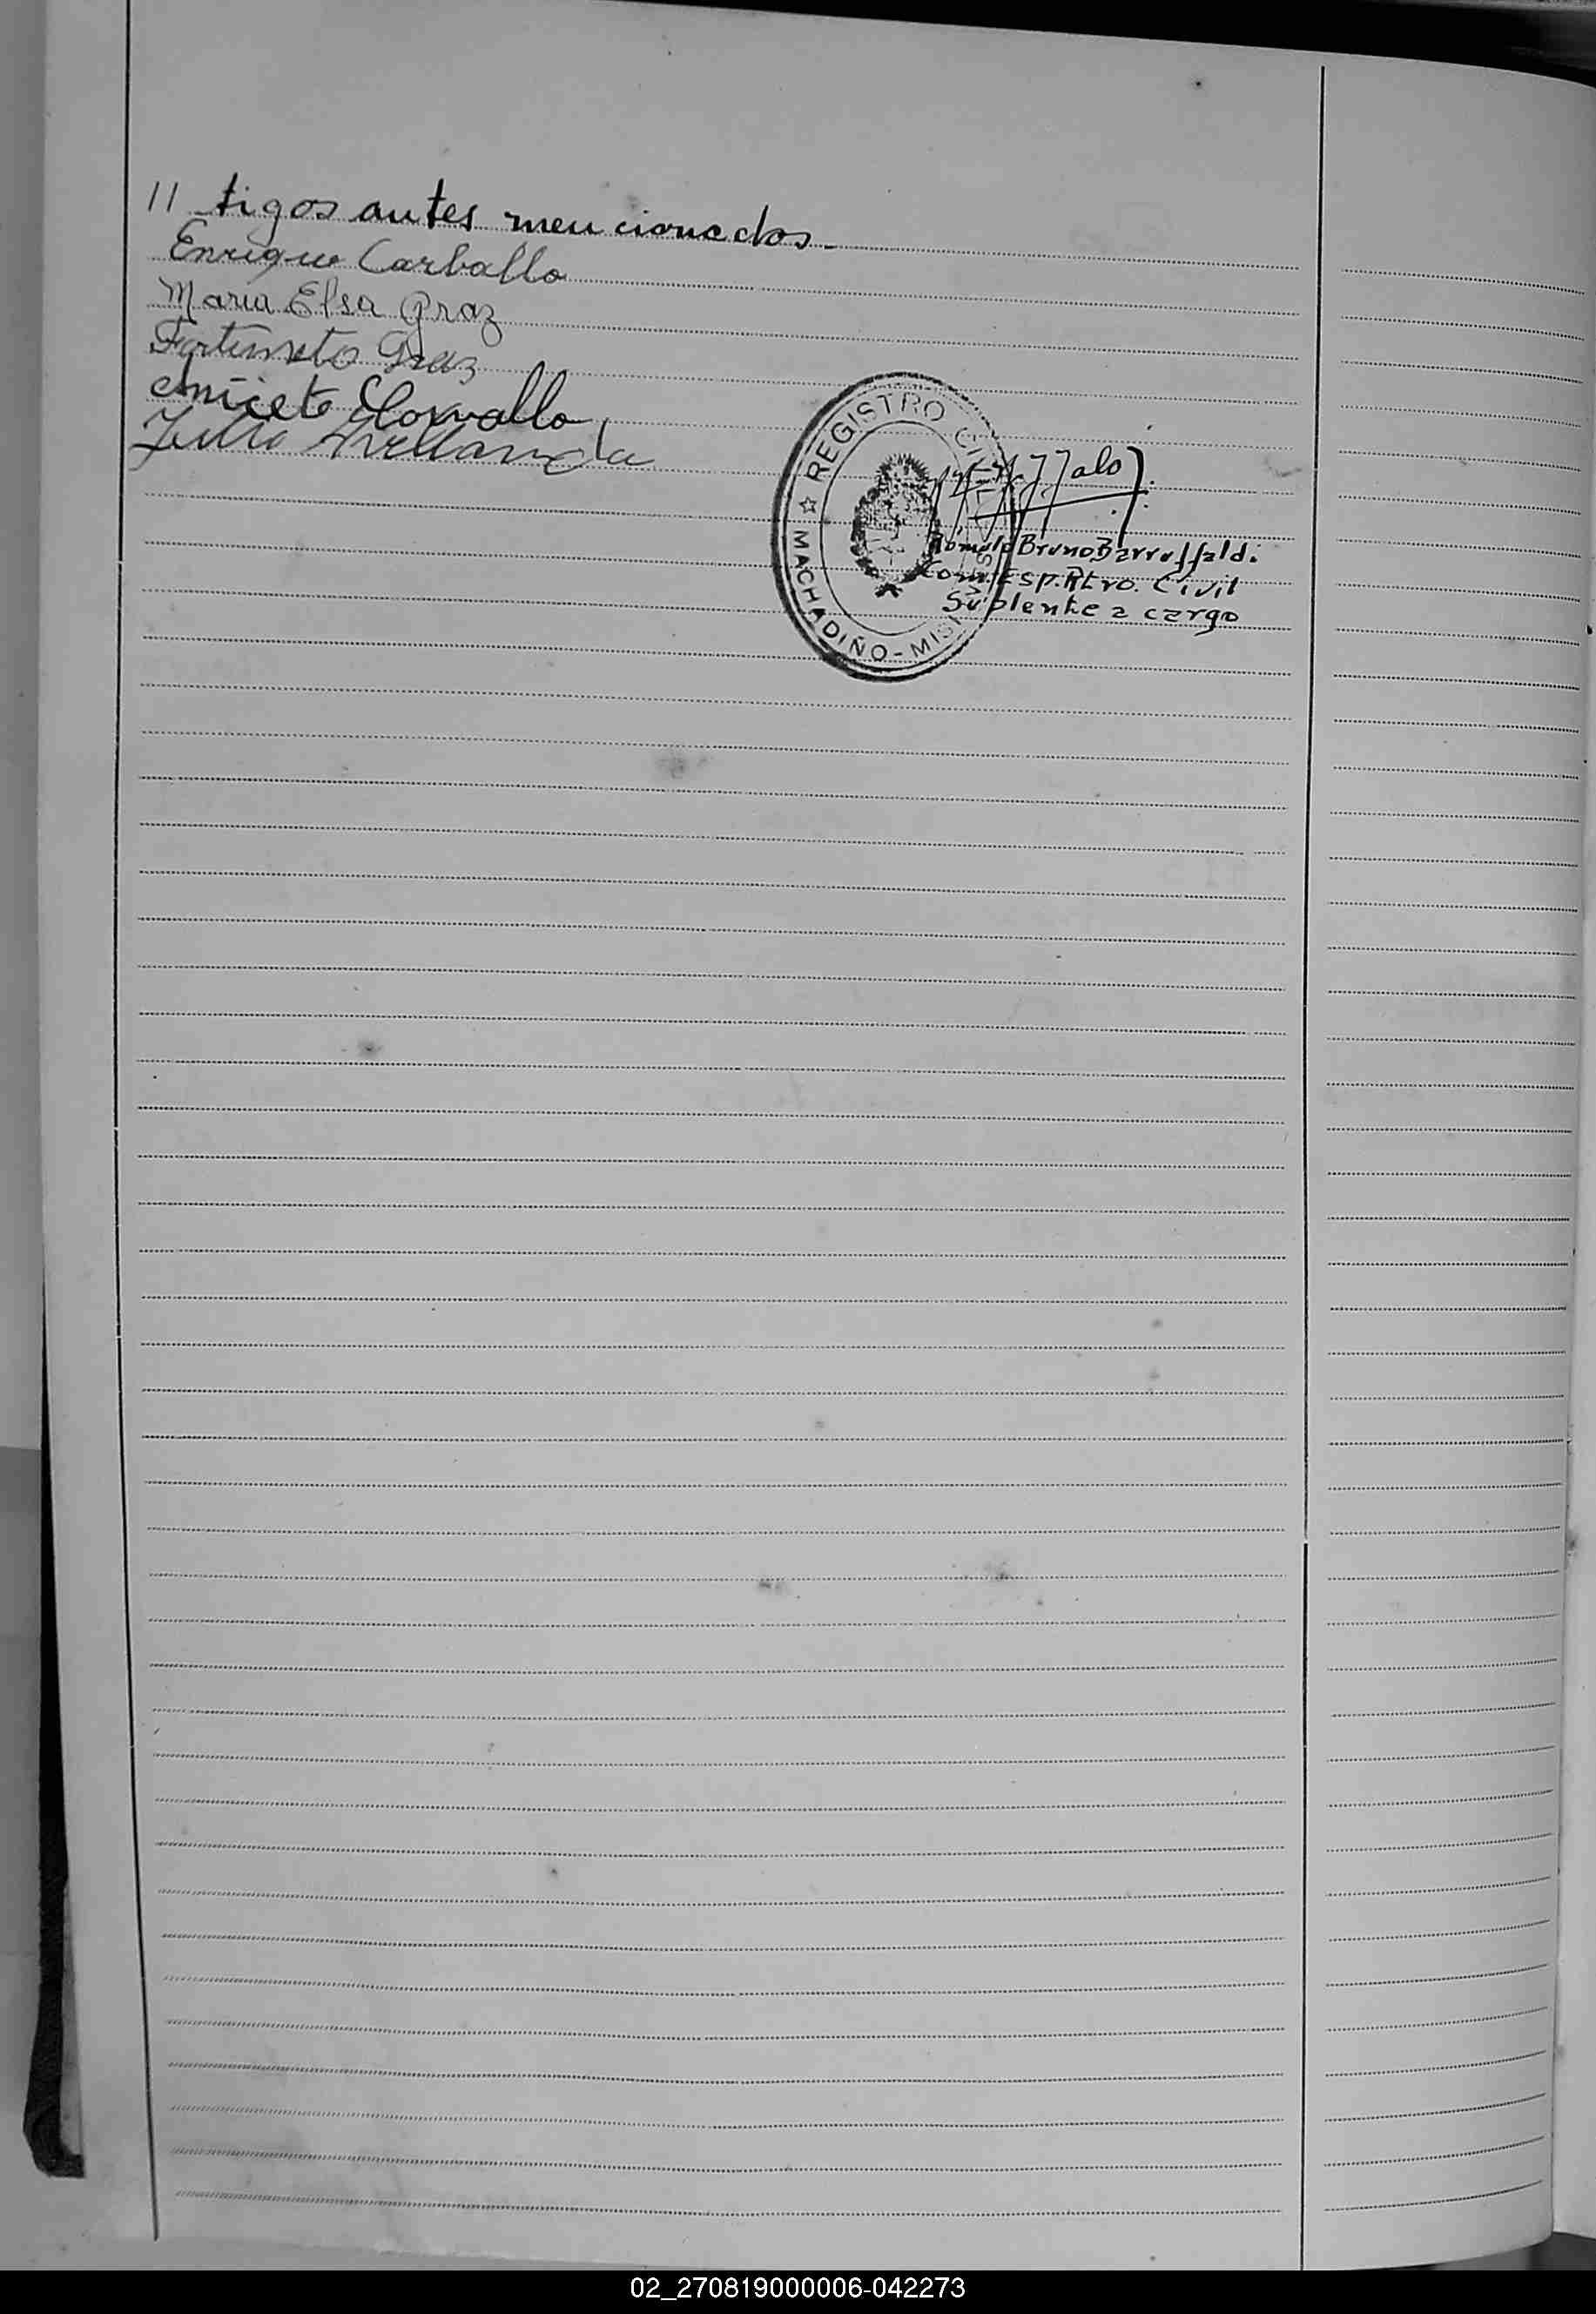 // tigos antes mencionados.
Enrique Carballo
Maria Elsa Graz
Fortunato Graz
Aniceto Carvallo
Julio Avellaneda
REGISTRO CIVIL
MACHADIÑO - MISIONES
Romulo Bruno Barruffaldi
Com. Esp. Rtro. Civil
Suplente a cargo
02_270819000006-042273